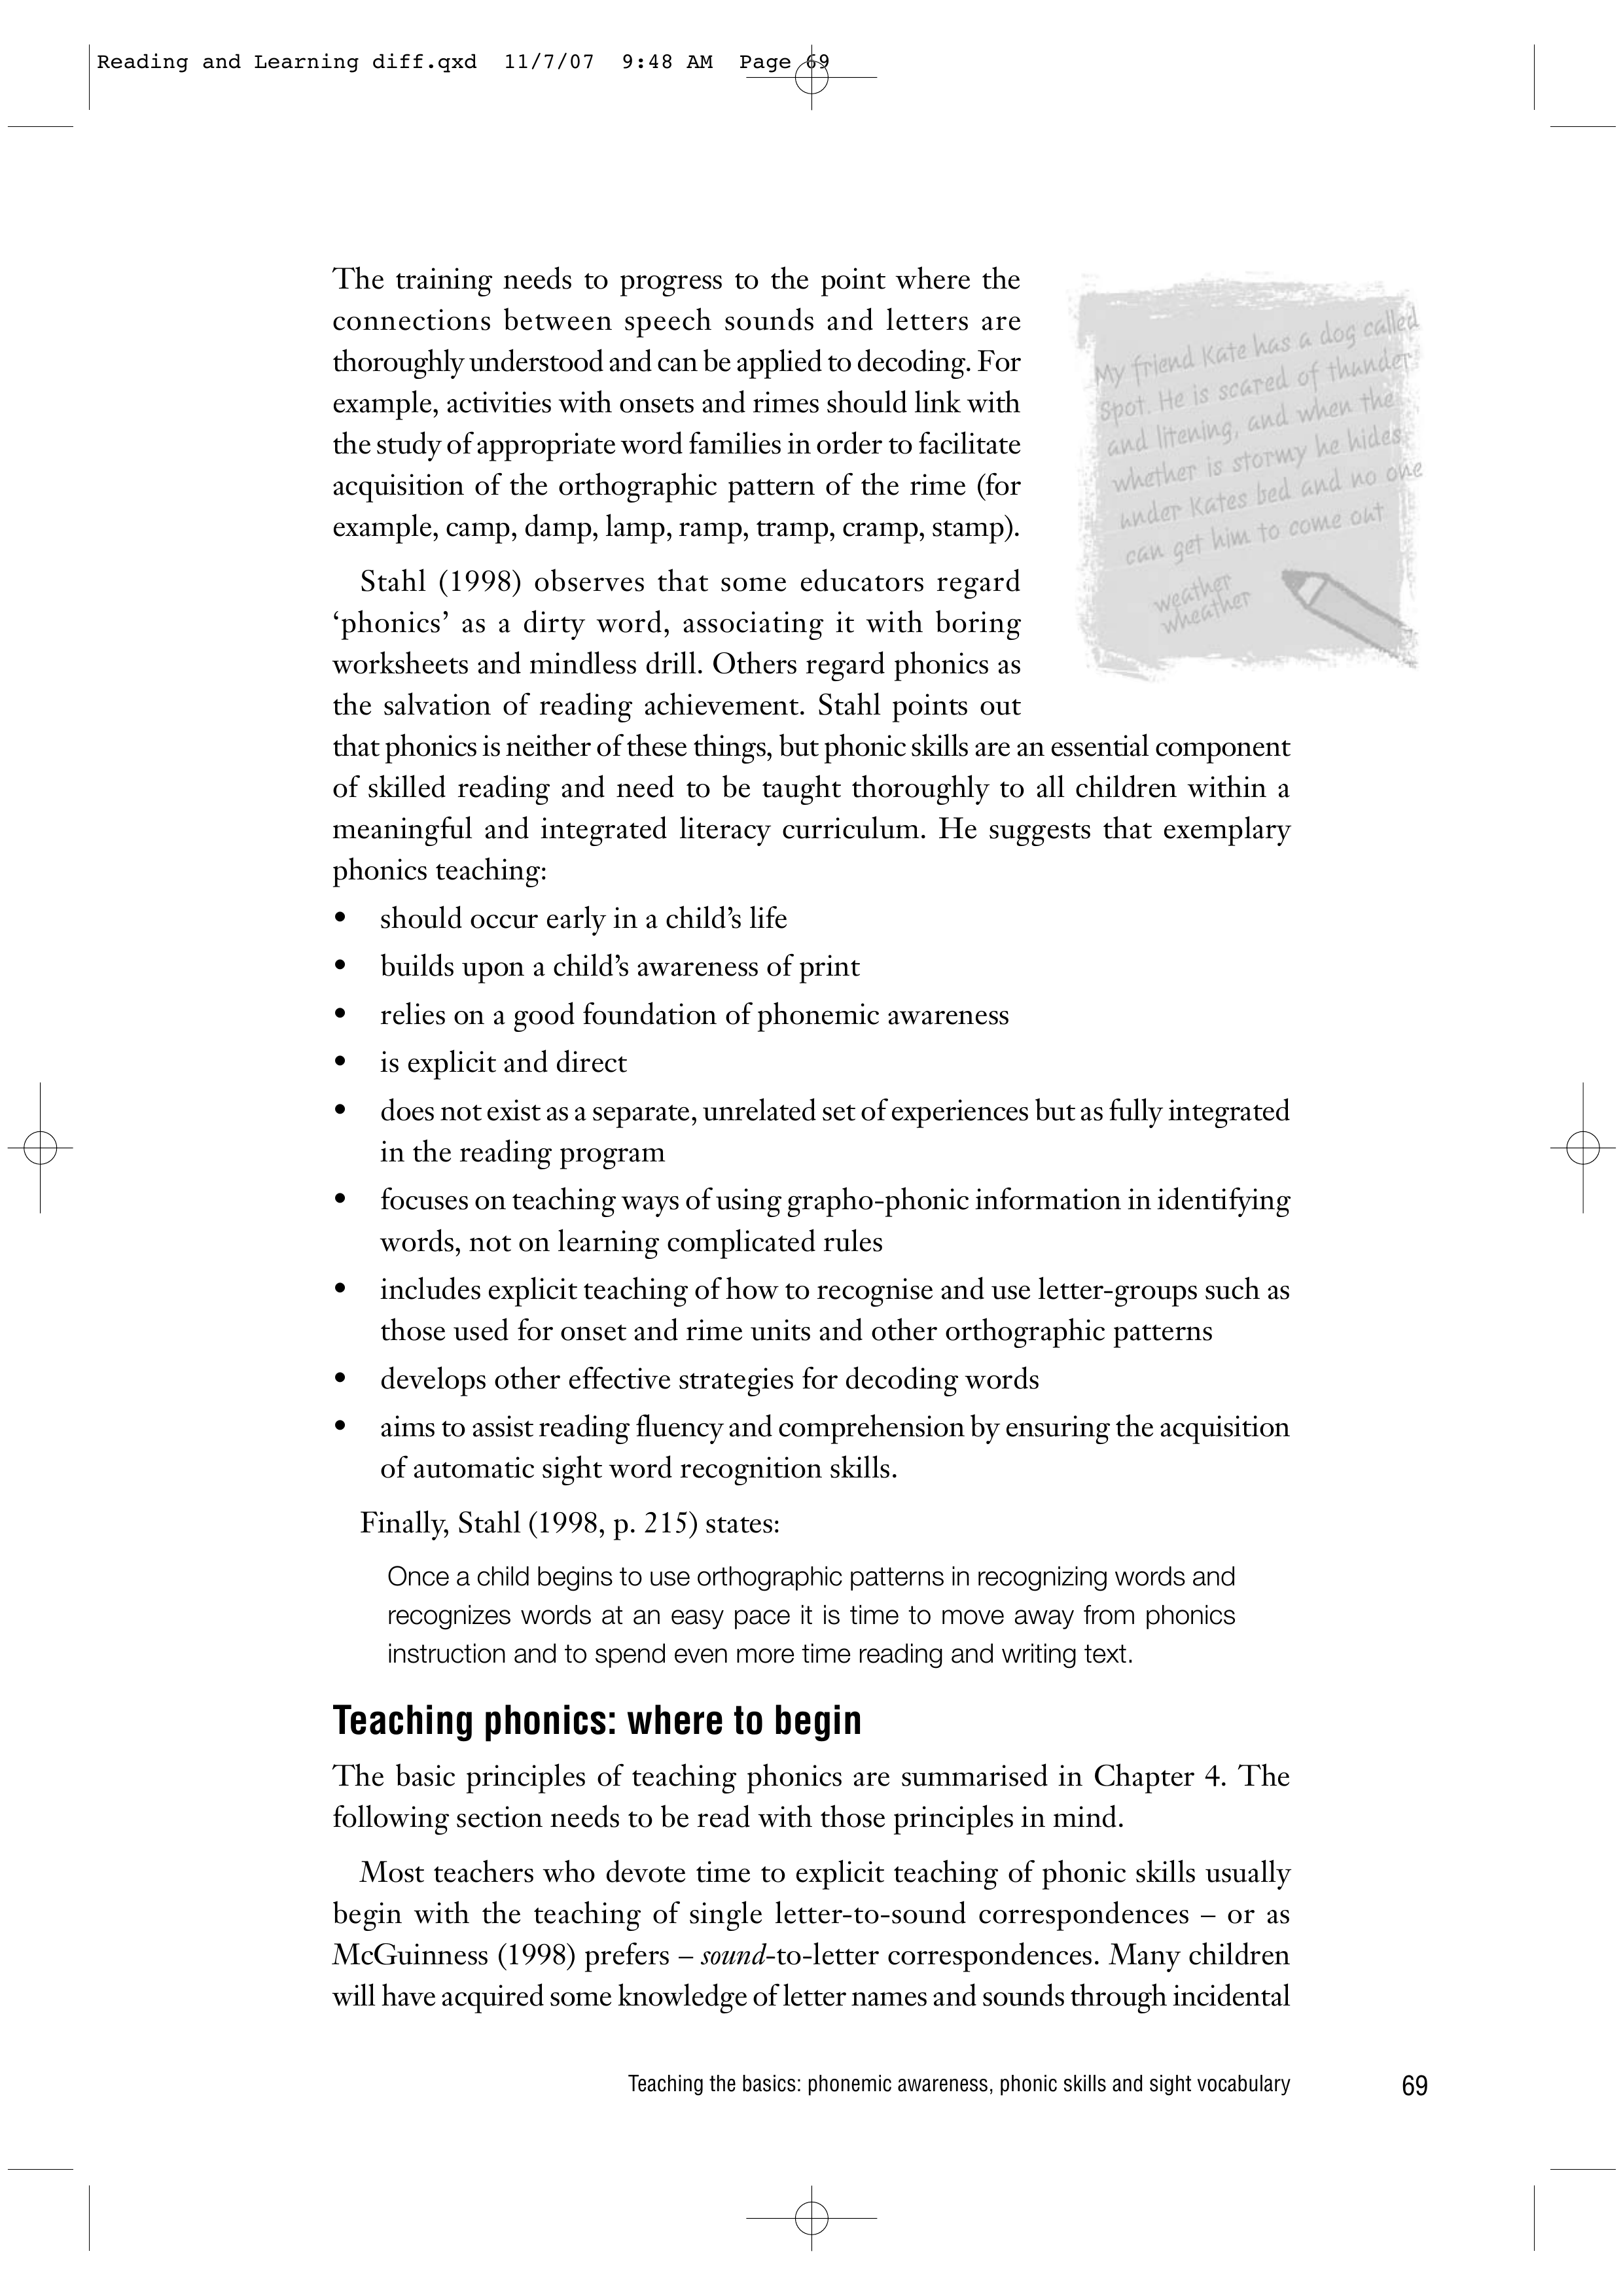 Reading and Learning diff.qxd 11/7/07 9:48 AM Page 69
The training needs to progress to the point where the
connections between speech sounds and letters are
thoroughly understood and can be applied to decoding. For
example, activities with onsets and rimes should link with
the study of appropriate word families in order to facilitate
acquisition of the orthographic pattern of the rime (for
example, camp, damp, lamp, ramp, tramp, cramp, stamp).
My friend Kate has a dog called
Spot. He is scared of thunder
and litening, and when the
whether is stormy he hides
under Kates bed and no one
can get him to come out
weather
wheather
Stahl (1998) observes that some educators regard
‘phonics’ as a dirty word, associating it with boring
worksheets and mindless drill. Others regard phonics as
the salvation of reading achievement. Stahl points out
that phonics is neither of these things, but phonic skills are an essential component
of skilled reading and need to be taught thoroughly to all children within a
meaningful and integrated literacy curriculum. He suggests that exemplary
phonics teaching:
• should occur early in a child’s life
• builds upon a child’s awareness of print
• relies on a good foundation of phonemic awareness
• is explicit and direct
• does not exist as a separate, unrelated set of experiences but as fully integrated
in the reading program
• focuses on teaching ways of using grapho-phonic information in identifying
words, not on learning complicated rules
• includes explicit teaching of how to recognise and use letter-groups such as
those used for onset and rime units and other orthographic patterns
• develops other effective strategies for decoding words
• aims to assist reading fluency and comprehension by ensuring the acquisition
of automatic sight word recognition skills.
Finally, Stahl (1998, p. 215) states:
Once a child begins to use orthographic patterns in recognizing words and
recognizes words at an easy pace it is time to move away from phonics
instruction and to spend even more time reading and writing text.
Teaching phonics: where to begin
The basic principles of teaching phonics are summarised in Chapter 4. The
following section needs to be read with those principles in mind.
Most teachers who devote time to explicit teaching of phonic skills usually
begin with the teaching of single letter-to-sound correspondences – or as
McGuinness (1998) prefers – sound-to-letter correspondences. Many children
will have acquired some knowledge of letter names and sounds through incidental
Teaching the basics: phonemic awareness, phonic skills and sight vocabulary 69